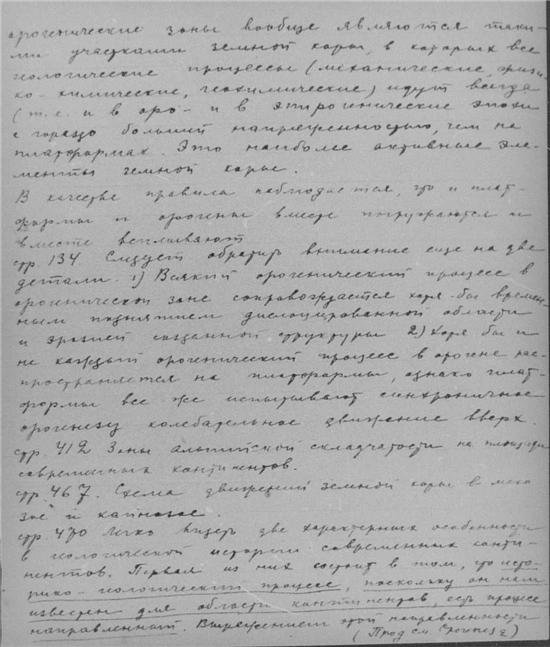 орогенические зоны вообще являются таки-
ми участками земной коры, в которых все
геологические процессы (механические, физи-
ко-химические, геохимические) идут всегда
(т.е. и в оро- и в эпирогенические эпохи
с гораздо большей напряженностью, чем на
платформах. Это наиболее активные эле-
менты земной коры.
В качестве правила наблюдается, что и плат-
формы и орогены вместе погружаются и
вместе всплывают
стр. 134. Следует обратить внимание еще на две
детали. 1) Всякий орогенический процесс в
орогенической зоне сопровождается хотя-бы времен-
ным поднятием дислоцированной области
и эрозией созданной структуры 2) Хотя бы и
не каждый орогенический процесс в орогене рас-
пространяется на платформы, однако плат-
формы все же испытывают синхроничное
орогенезу колебательное движение вверх.
стр. 412 Зоны альпийской складчатости на площади
современных континентов.
стр. 467. Схема движений земной коры в мезо
зое и кайнозое.
стр. 470 Легко видеть две характерных особенности
в геологической истории современных конти-
нентов. Первая из них состоит в том, что исто-
рико-геологический процесс, поскольку он нам
известен для области континентов, есть процесс
направленный Выражением этой направленности
(Прод см.